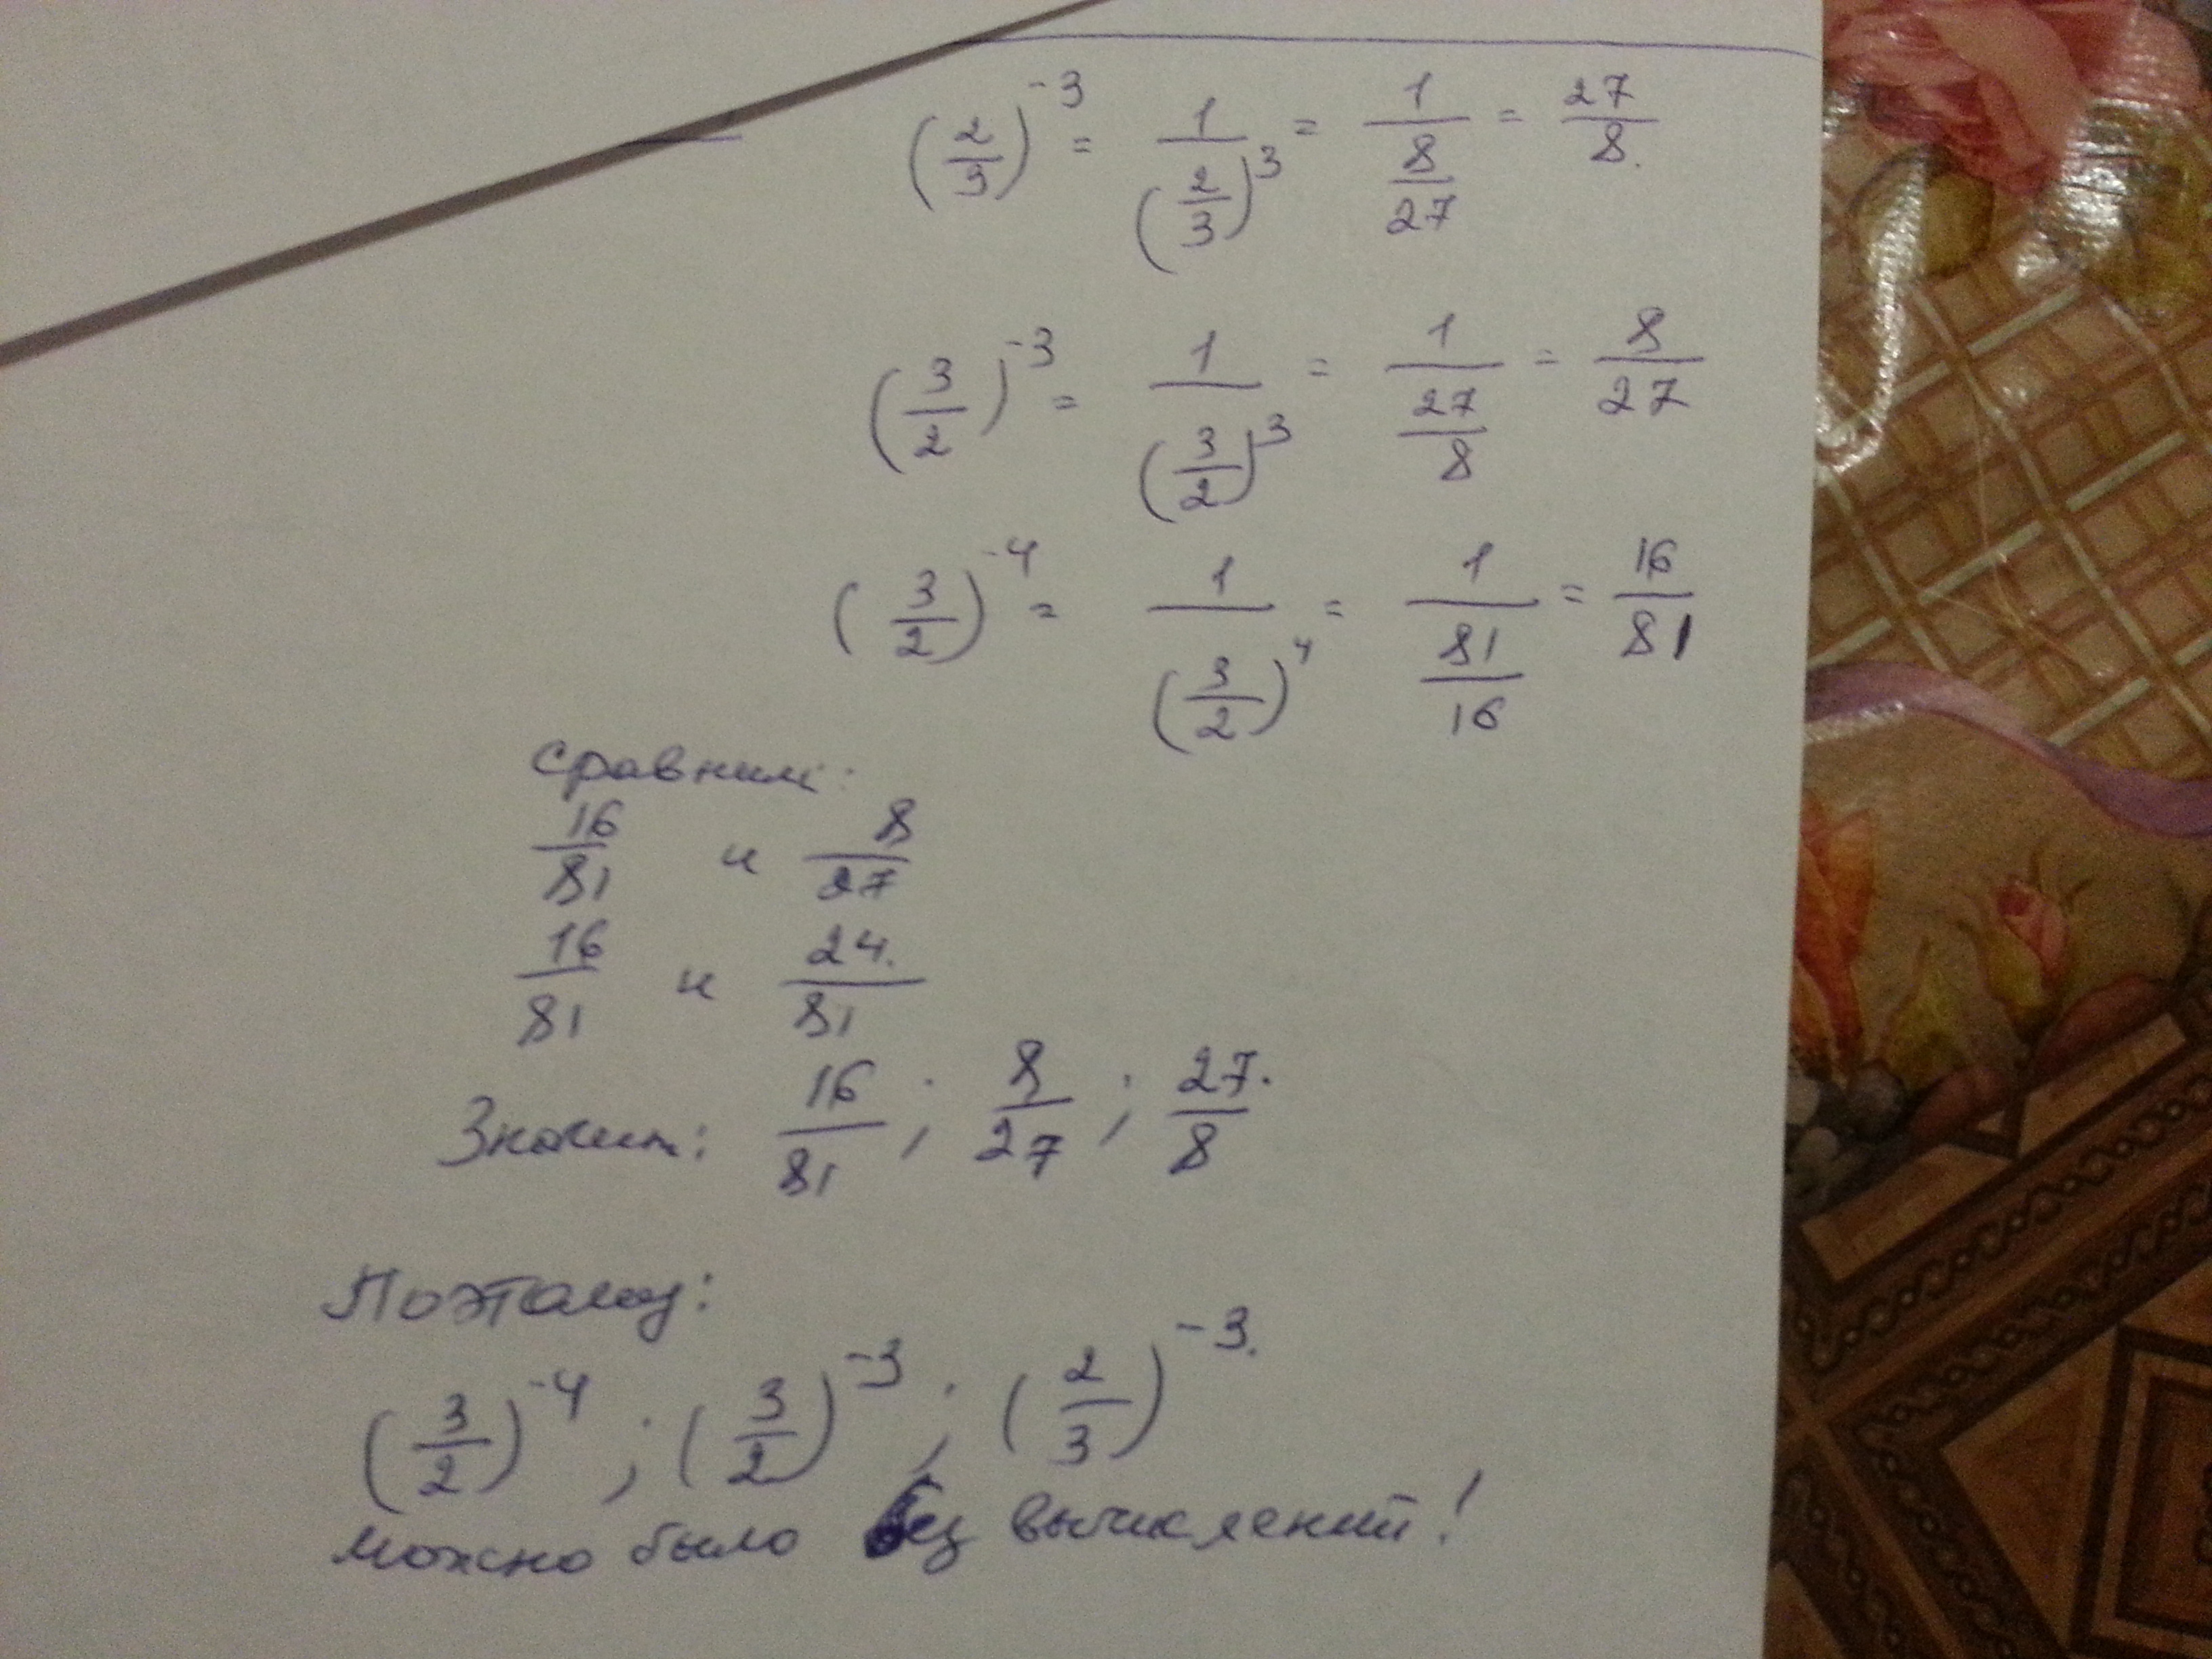 (2/3)^-3 = 1/(2/3)^3 = 1/(8/27) = 27/8.
(3/2)^-3 = 1/(3/2)^3 = 1/(27/8) = 8/27
(3/2)^-4 = 1/(3/2)^4 = 1/(81/16) = 16/81
Сравним:
16/81 и 8/27
16/81 и 24/81
Значит: 16/81 ; 8/27 ; 27/8
Поэтому:
(3/2)^-4 ; (3/2)^-3 ; (2/3)^-3.
можно было без вычислений!